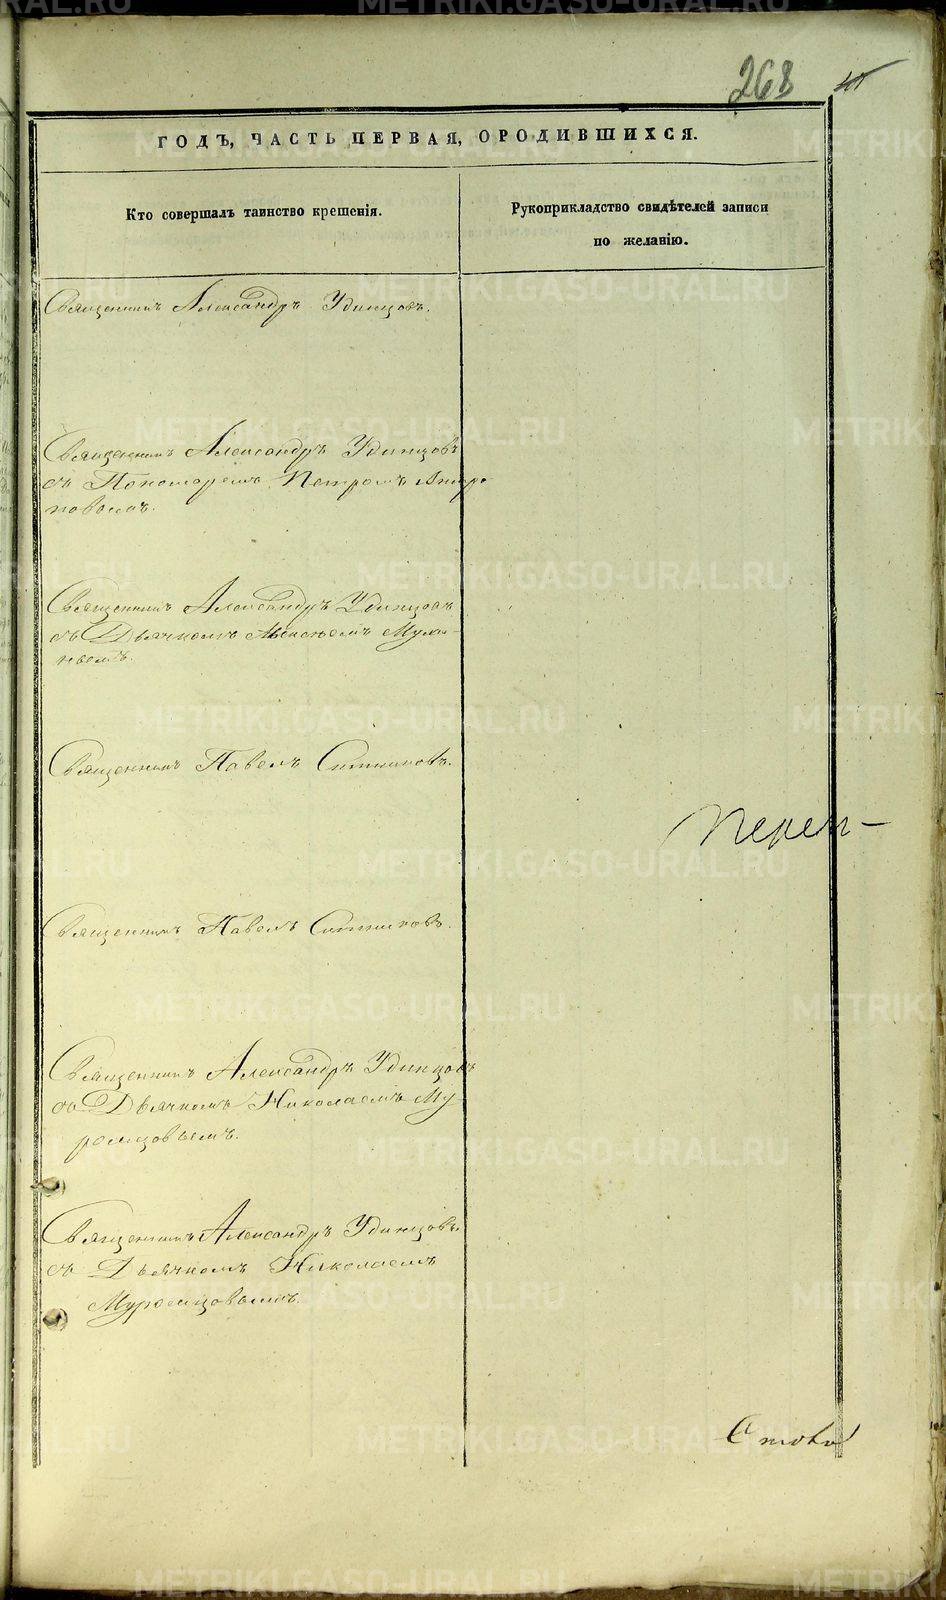 268
ГОДЪ, ЧАСТЬ ПЕРВАЯ, ОРОДИВШИХСЯ.
Кто совершалъ таинство крещенія.
Рукоприкладство свидѣтелей записи
по желанію.
Священникъ Александръ Удинцовъ.
Священникъ Александръ Удинцовъ
съ Пономаремъ Петромъ Антро-
повымъ.
Священникъ Александръ Удинцовъ
съ Дьячкомъ
Священникъ Павелъ Ситниковъ.
Священникъ Павелъ Ситниковъ.
Священникъ Александръ Удинцовъ
съ Дьячкомъ Николаемъ Му-
ромцовымъ.
Священникъ Александръ Удинцовъ
съ Дьячкомъ Николаемъ
Муромцовымъ.
METRIKI.GASO-URAL.RU